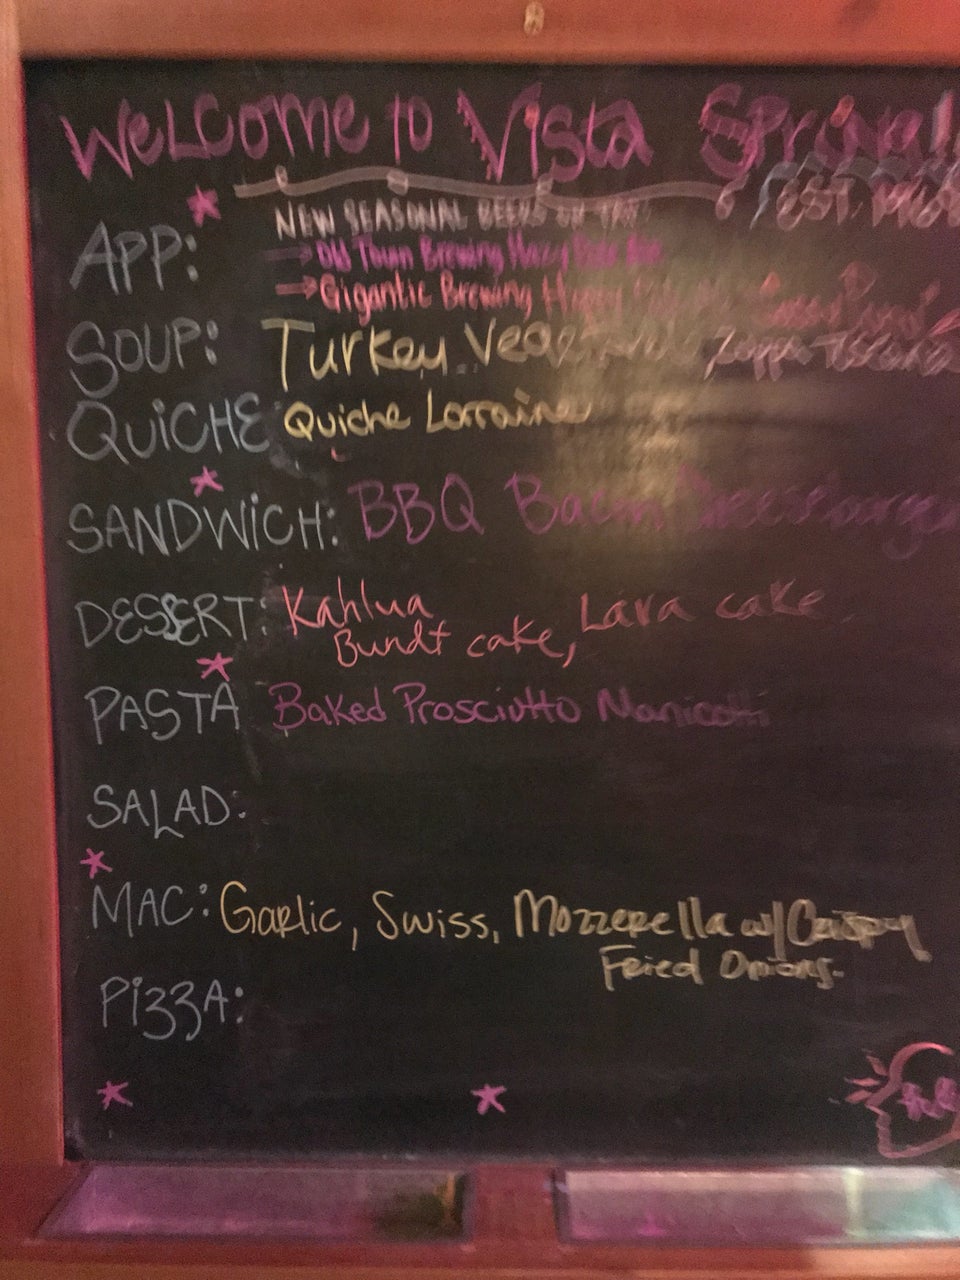 WELCOME TO Vista Spring
EST.
APP:
NEW SEASONAL BEERS ON TAP:
→ Old Town Brewing
→ Gigantic Brewing
SOUP: Turkey Vegetable, Zuppa Toscana
QUICHE: Quiche Lorraine
SANDWICH: BBQ Bacon Cheeseburger
DESSERT: Kahlua Bundt cake, Lava cake
PASTA Baked Prosciutto Manicotti
SALAD:
MAC: Garlic, Swiss, Mozzerella w/ Crispy
Fried Onions.
PIZZA: